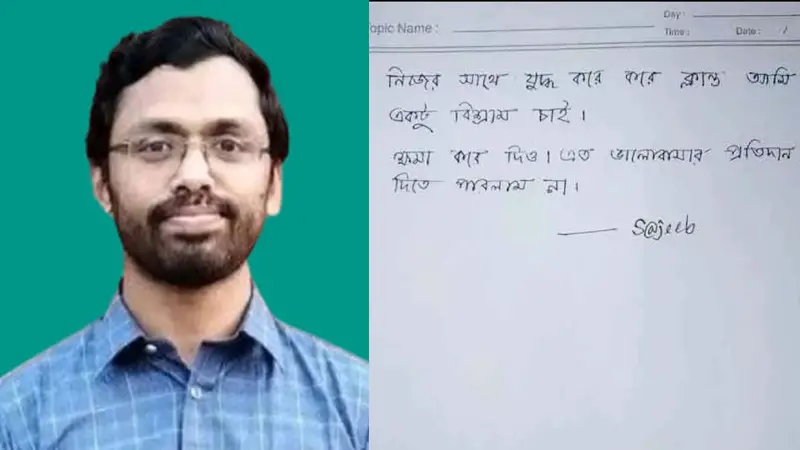 Topic Name :
Day :
Time :
Date : /
নিজের সাথে যুদ্ধ করে করে ক্লান্ত আমি
একটু বিশ্রাম চাই।
ক্ষমা করে দিও। এত ভালোবাসার প্রতিদান
দিতে পারলাম না।
— S@jeeb